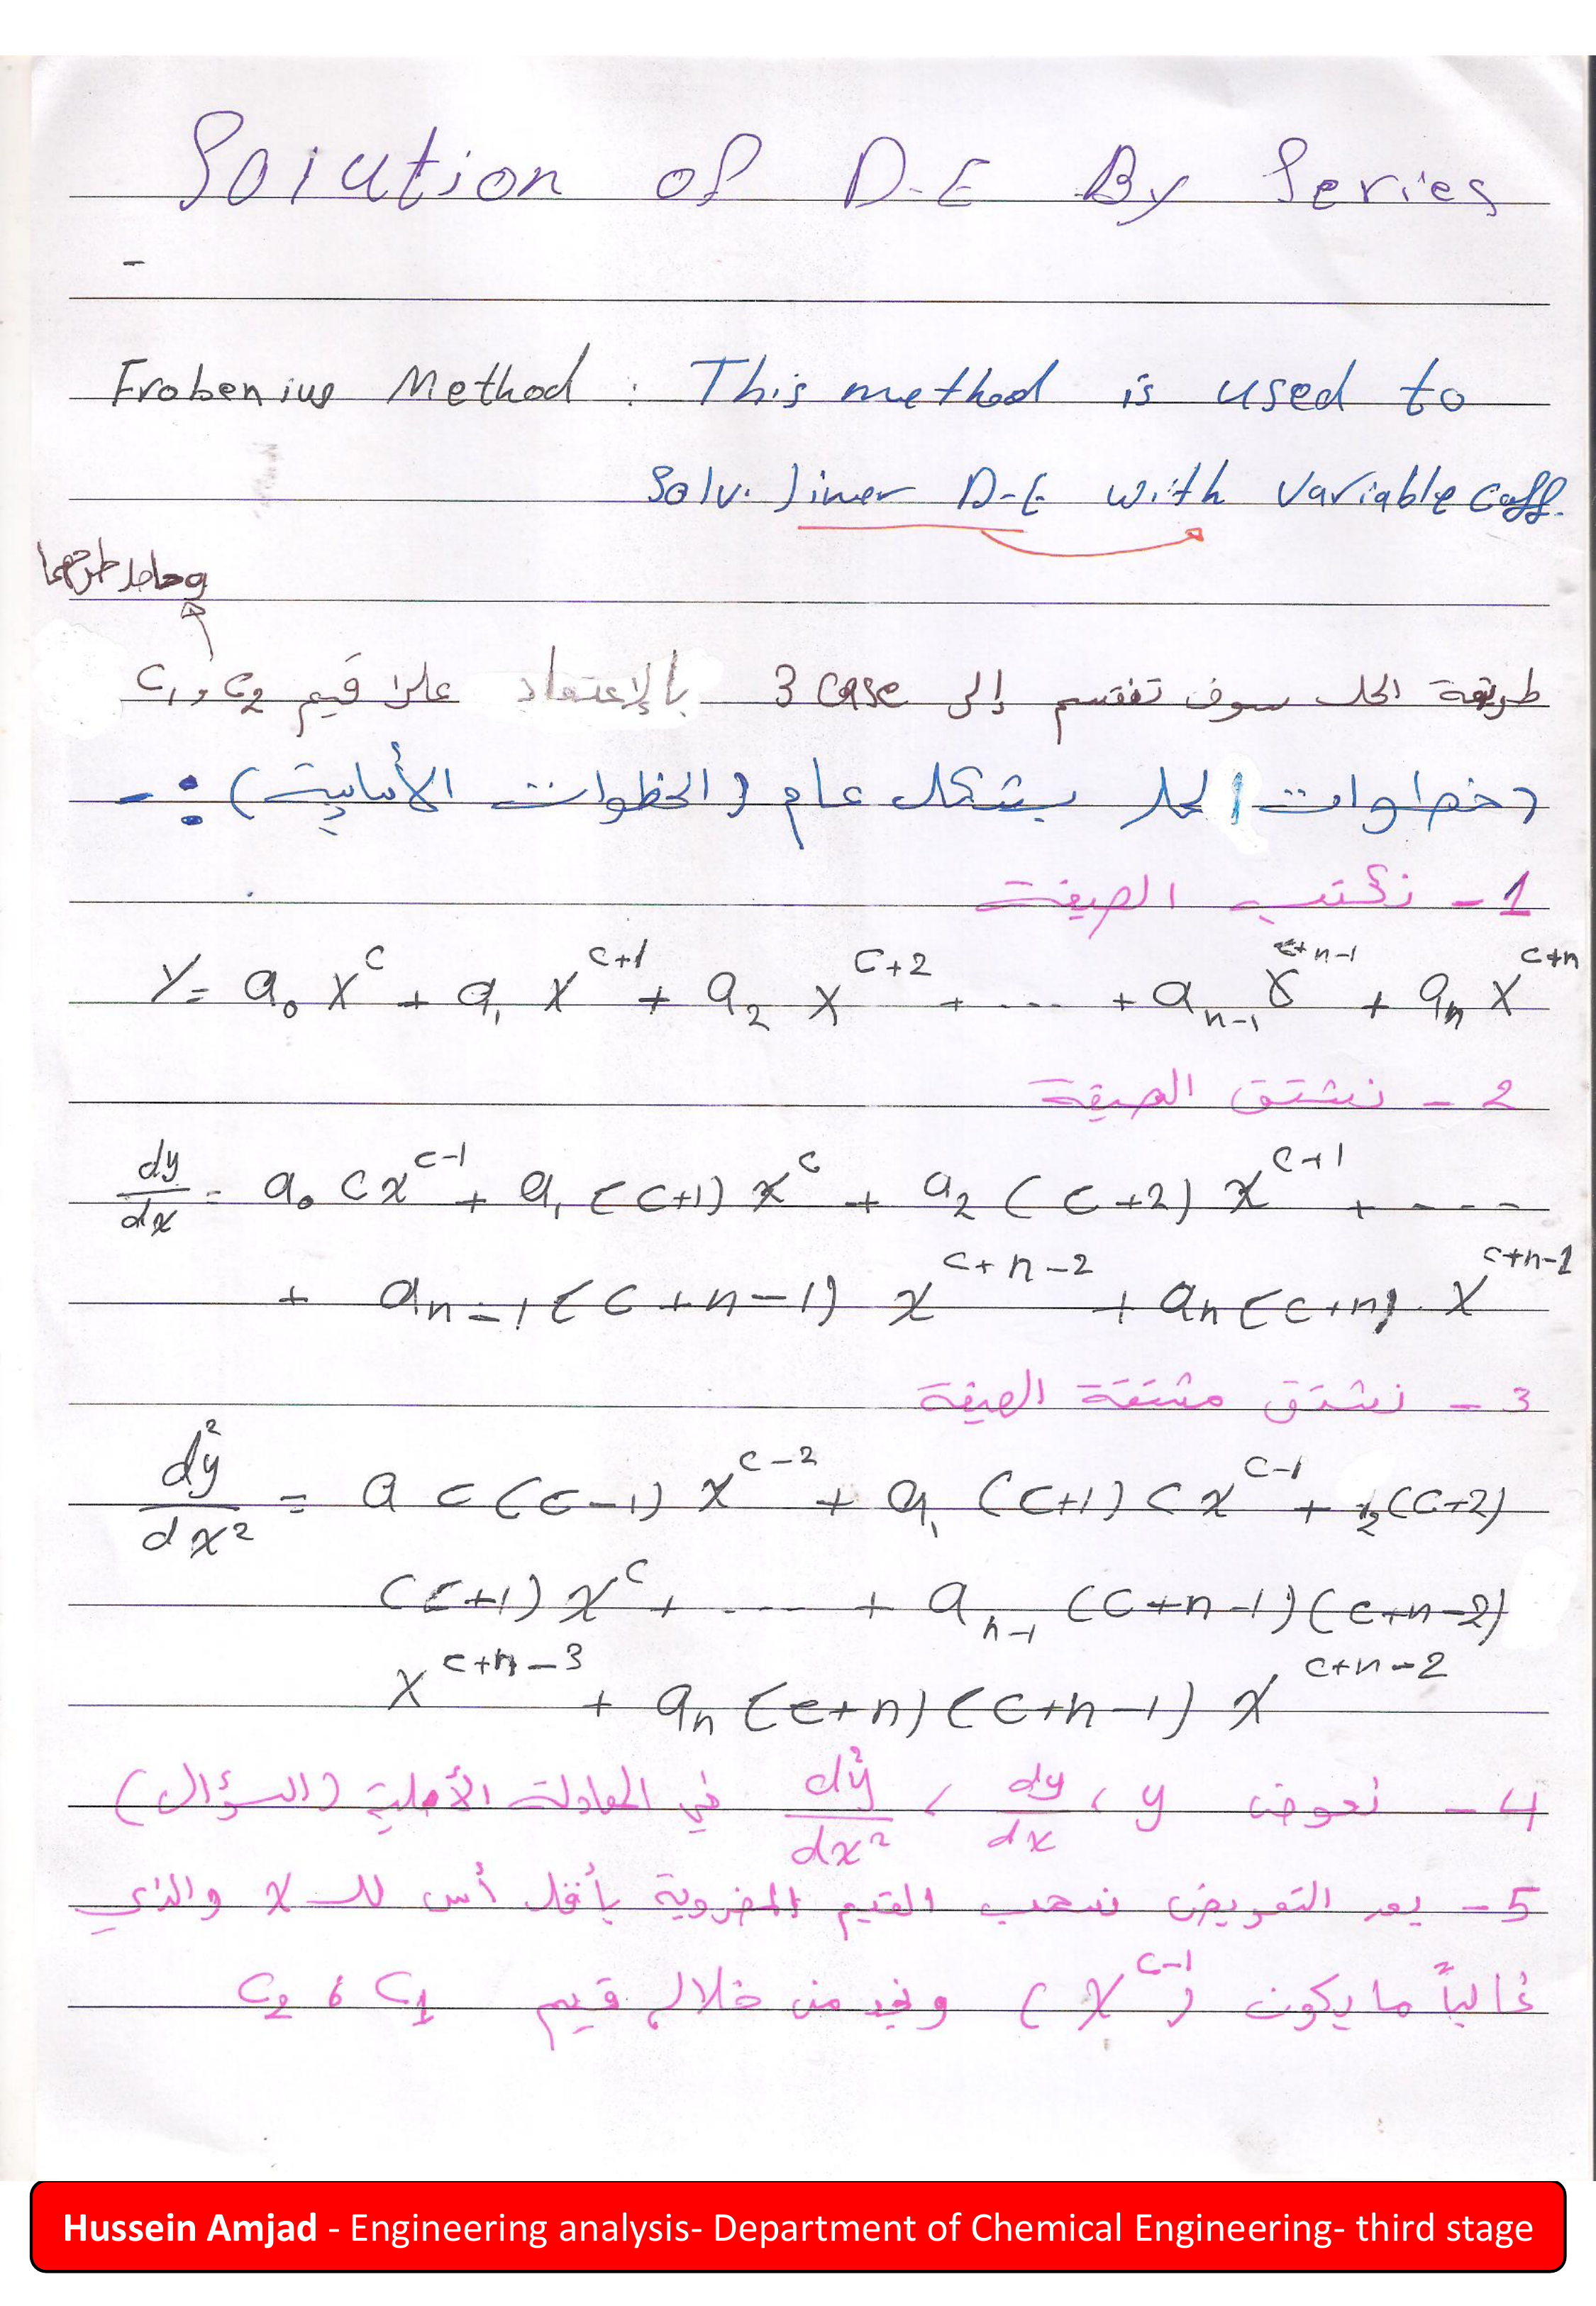 Solution of D-E By Series
-
Frobenius Method : This method is used to
Solv. liner D-E with variable Coff.
وحاصل طرحهما
طريقة الحل سوف تنقسم إلى 3 case بالإعتماد على قيم C₁ , C₂
(خطوات الحل بشكل عام (الخطوات الأساسية) :-
1- نكتب الصيغة
Y = a₀ x^c + a₁ x^(c+1) + a₂ x^(c+2) + ---- + a_(n-1) x^(c+n-1) + a_n x^(c+n)
2- نشتق الصيغة
dy/dx = a₀ c x^(c-1) + a₁ (c+1) x^c + a₂ (c+2) x^(c+1) + ----
+ a_(n-1) (c+n-1) x^(c+n-2) + a_n (c+n) . x^(c+n-1)
3- نشتق مشتقة الصيغة
d²y/dx² = a c (c-1) x^(c-2) + a₁ (c+1) c x^(c-1) + ₂(c+2)
(c+1) x^c + ---- + a_(n-1) (c+n-1)(c+n-2)
x^(c+n-3) + a_n (c+n)(c+n-1) x^(c+n-2)
4- نعوض y ، dy/dx ، d²y/dx² في المعادلة الأصلية (السؤال)
5- بعد التعويض نسحب القيم المضروبة بأقل أس للـ x والذي
غالباً ما يكون (x^(c-1)) ونجد من خلاله قيم C₁ ، C₂
Hussein Amjad - Engineering analysis- Department of Chemical Engineering- third stage